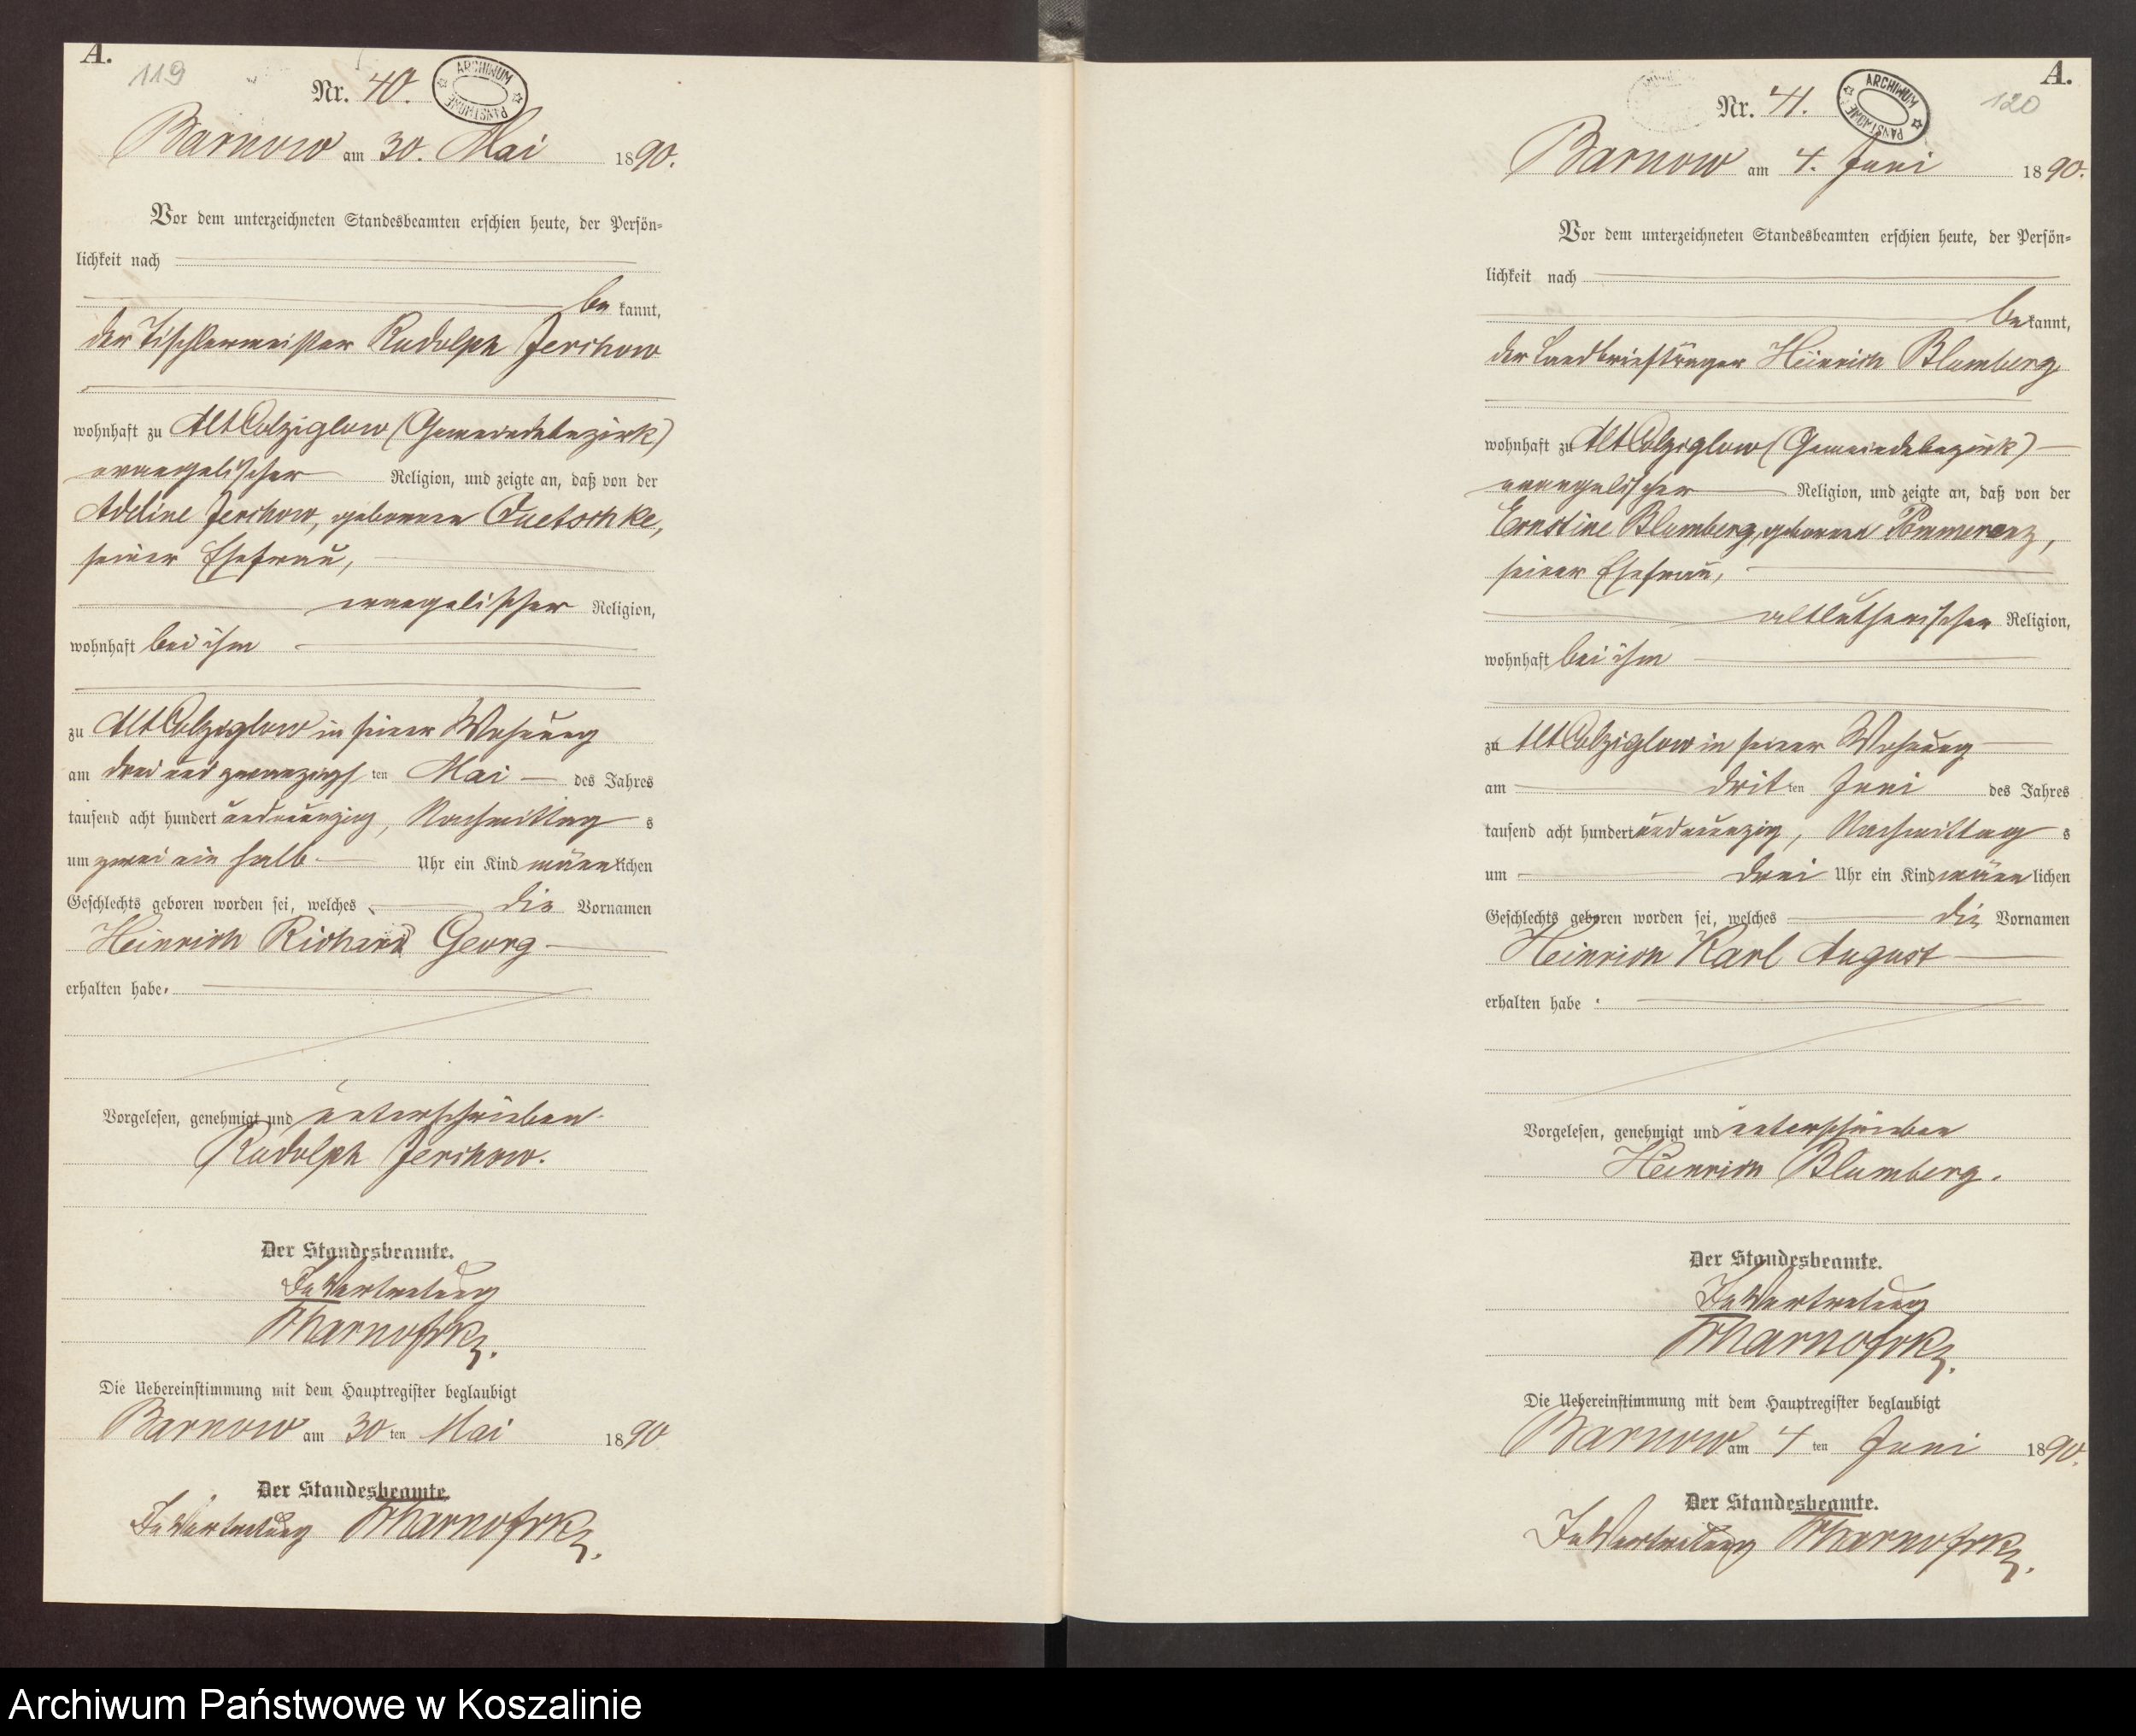 A.
119
Nr. 40.
ARCHIWUM PAŃSTWOWE
Barnow am 30. Mai 1890.
Vor dem unterzeichneten Standesbeamten erschien heute, der Persön-
lichkeit nach
be kannt,
der Tischlermeister Rudolph Jerchow
wohnhaft zu Alt Colziglow (Gemeindebezirk)
evangelischer Religion, und zeigte an, daß von der
Adeline Jerchow, geborenen Quetschke,
seiner Ehefrau,
evangelischer Religion,
wohnhaft bei ihm
zu Alt Colziglow in seiner Wohnung
am drei und zwanzigs ten Mai des Jahres
tausend acht hundert undneunzig, Nachmittag s
um zwei ein halb Uhr ein Kind männlichen
Geschlechts geboren worden sei, welches die Vornamen
Heinrich Richard Georg
erhalten habe.
Vorgelesen, genehmigt und unterschrieben.
Rudolph Jerchow.
Der Standesbeamte.
In Vertretung
Die Uebereinstimmung mit dem Hauptregister beglaubigt
Barnow am 30 ten Mai 1890
Der Standesbeamte.
In Vertretung
A.
120
Nr. 41.
ARCHIWUM PAŃSTWOWE
Barnow am 4. Juni 1890.
Vor dem unterzeichneten Standesbeamten erschien heute, der Persön-
lichkeit nach
bekannt,
der Landbriefträger Heinrich Blumberg
wohnhaft zu Alt Colziglow (Gemeindebezirk)
evangelischer Religion, und zeigte an, daß von der
Ernstine Blumberg, geborenen Pommerenz,
seiner Ehefrau,
altlutherischer Religion,
wohnhaft bei ihm
zu Alt Colziglow in seiner Wohnung
am drit ten Juni des Jahres
tausend acht hundert undneunzig, Nachmittag s
um drei Uhr ein Kind männlichen
Geschlechts geboren worden sei, welches die Vornamen
Heinrich Karl August
erhalten habe.
Vorgelesen, genehmigt und unterschrieben
Heinrich Blumberg.
Der Standesbeamte.
In Vertretung
Die Uebereinstimmung mit dem Hauptregister beglaubigt
Barnow am 4 ten Juni 1890.
Der Standesbeamte.
In Vertretung
Archiwum Państwowe w Koszalinie